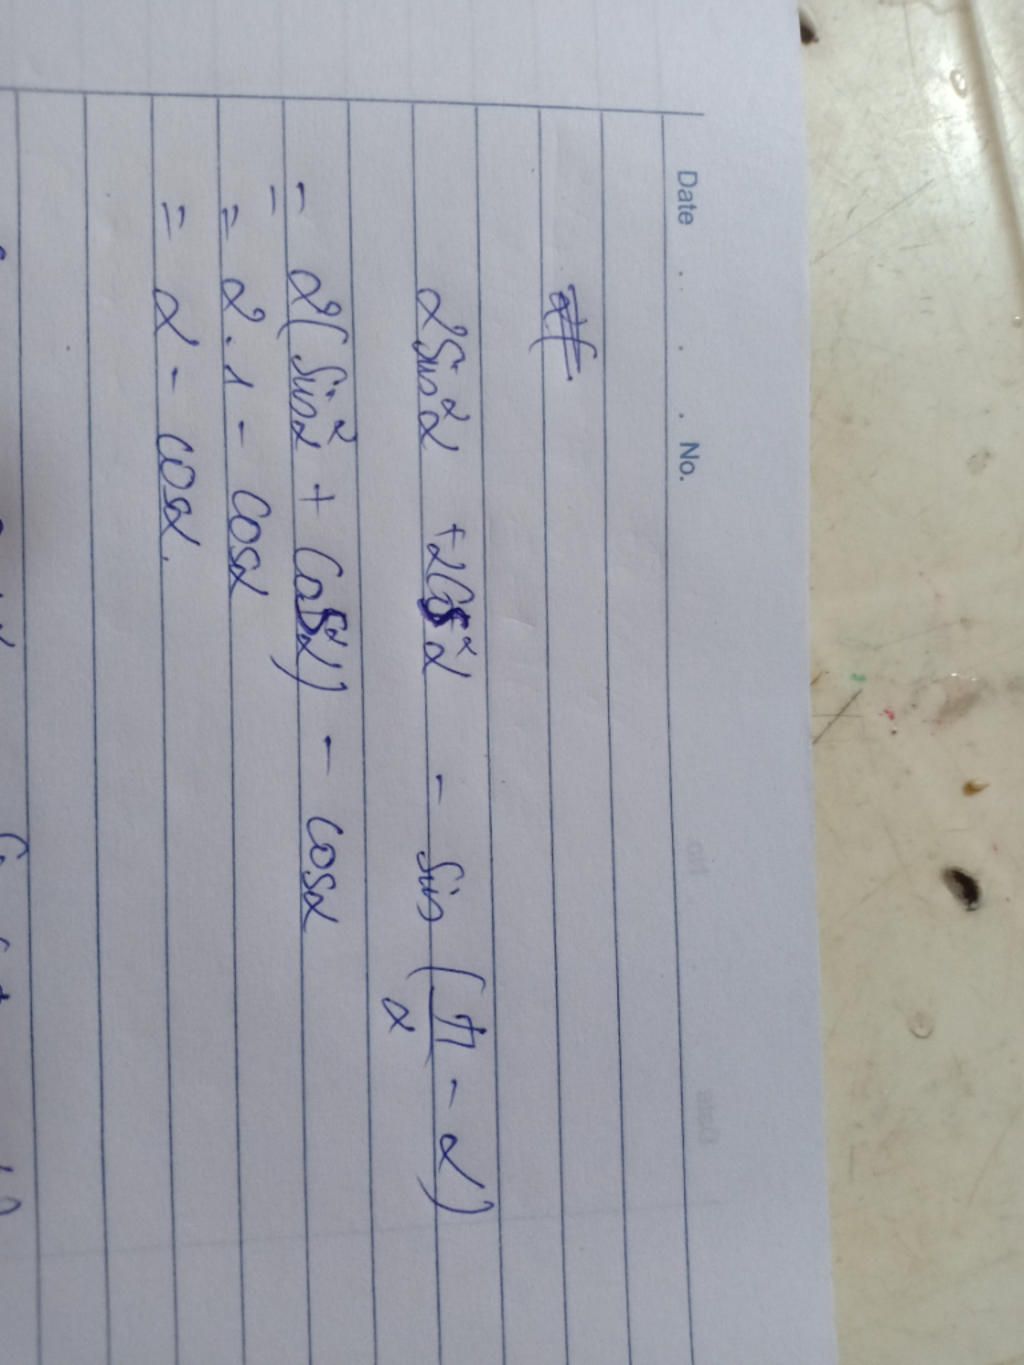 Date . . . . No.
2Sin²α + 2Cos²α - Sin (π/2 - α)
= 2(Sin²α + Cos²α) - cosα
= 2.1 - Cosα
= 2 - cosα.